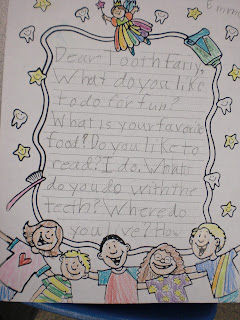 Dear Tooth Fairy,
What do you like
to do for fun?
What is your favorite
food? Do you like to
read? I do. What
do you do with the
teeth? Where do
you live? How